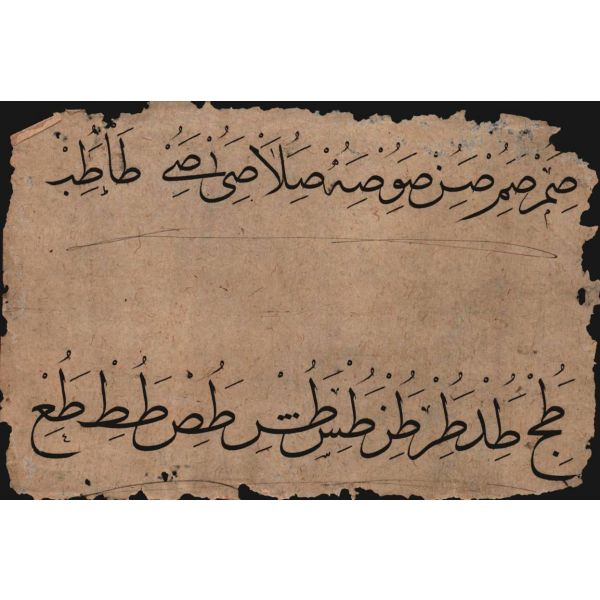 صم صم صن صو صه صلا صى صے طا طب
طج طد طر طر طس طش طص طط طع